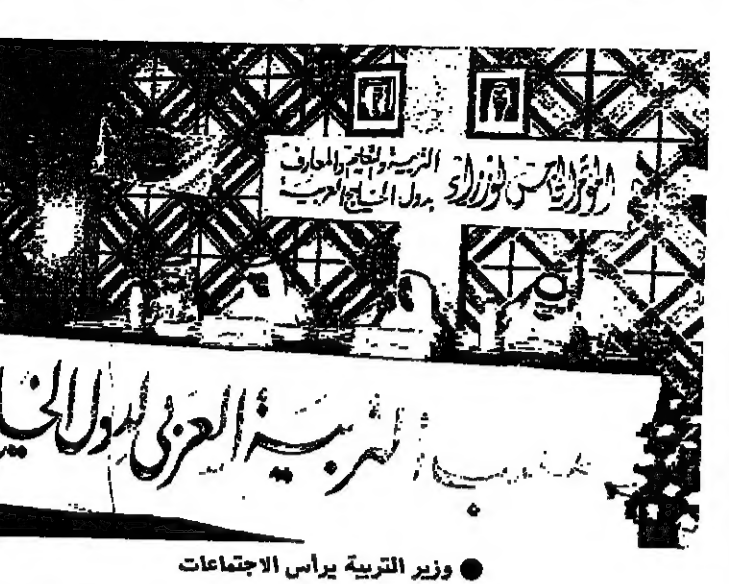 المؤتمر لوزراء التربية والتعليم والمعارف
بدول الخليج العربية
مكتب التربية العربي لدول الخليـ
وزير التربية يرأس الاجتماعات